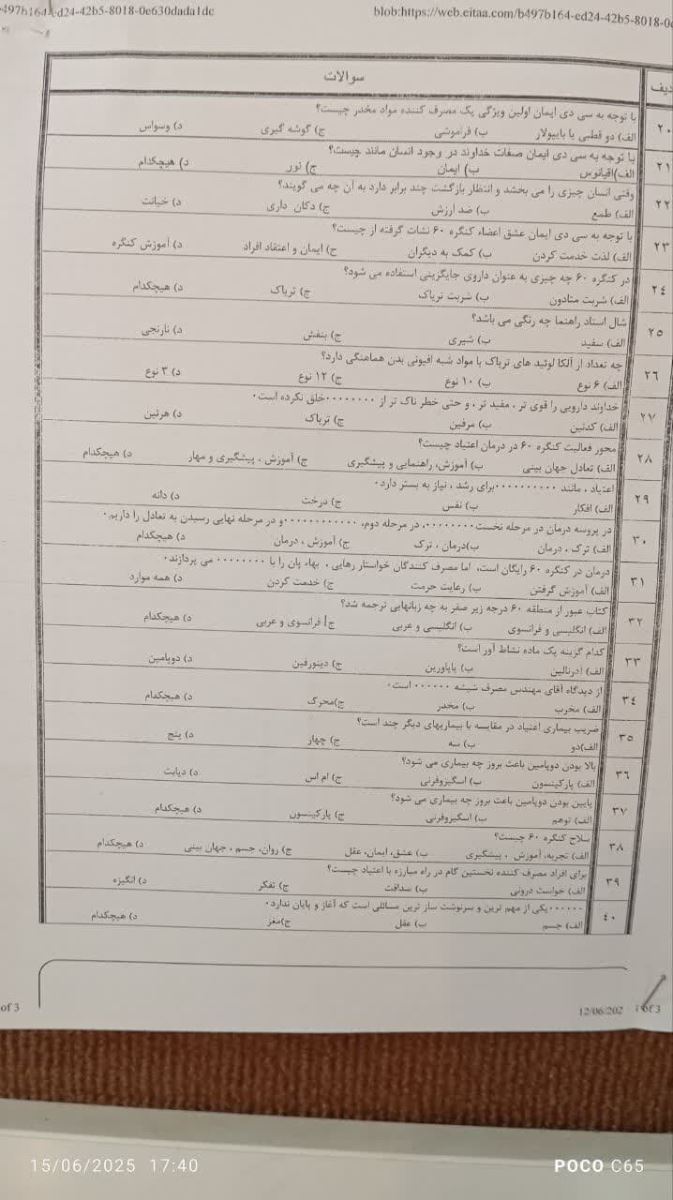 497b164-ed24-42b5-8018-0e630dada1dc
blob:https://web.eitaa.com/b497b164-ed24-42b5-8018-0e
دیف
سوالات
۲۰
با توجه به سی دی ایمان اولین ویژگی یک مصرف کننده مواد مخدر چیست؟
الف) دو قطبی یا بایپولار ب) فراموشی ج) گوشه گیری د) وسواس
۲۱
با توجه به سی دی ایمان صفات خداوند در وجود انسان مانند چیست؟
الف)اقیانوس ب) ایمان ج) نور د) هیچکدام
۲۲
وقتی انسان چیزی را می بخشد و انتظار بازگشت چند برابر دارد به آن چه می گویند؟
الف) طمع ب) ضد ارزش ج) دکان داری د) خیانت
۲۳
با توجه به سی دی ایمان عشق اعضاء کنگره ۶۰ نشات گرفته از چیست؟
الف) لذت خدمت کردن ب) کمک به دیگران ج) ایمان و اعتقاد افراد د) آموزش کنگره
۲۴
در کنگره ۶۰ چه چیزی به عنوان داروی جایگزینی استفاده می شود؟
الف) شربت متادون ب) شربت تریاک ج) تریاک د) هیچکدام
۲۵
شال استاد راهنما چه رنگی می باشد؟
الف) سفید ب) شیری ج) بنفش د) نارنجی
۲۶
چه تعداد از آلکا لوئید های تریاک با مواد شبه افیونی بدن هماهنگی دارد؟
الف) ۶ نوع ب) ۱۰ نوع ج) ۱۲ نوع د) ۳ نوع
۲۷
خداوند دارویی را قوی تر ، مفید تر ، و حتی خطر ناک تر از ۰۰۰۰۰۰۰۰خلق نکرده است۰
الف) کدئین ب) مرفین ج) تریاک د) هرئین
۲۸
محور فعالیت کنگره ۶۰ در درمان اعتیاد چیست؟
الف) تعادل جهان بینی ب) آموزش، راهنمایی و پیشگیری ج) آموزش ، پیشگیری و مهار د) هیچکدام
۲۹
اعتیاد ، مانند ۰۰۰۰۰۰۰۰۰۰برای رشد ، نیاز به بستر دارد۰
الف) افکار ب) نفس ج) درخت د) دانه
۳۰
در پروسه درمان در مرحله نخست۰۰۰۰۰۰۰۰، در مرحله دوم، ۰۰۰۰۰۰۰۰۰۰۰و در مرحله نهایی رسیدن به تعادل را داریم۰
الف) ترک ، درمان ب)درمان ، ترک ج) آموزش ، درمان د) هیچکدام
۳۱
درمان در کنگره ۶۰ رایگان است، اما مصرف کنندگان خواستار رهایی ، بهاء یان را با ۰۰۰۰۰۰۰۰ می پردازند۰
الف) آموزش گرفتن ب) رعایت حرمت ج) خدمت کردن د) همه موارد
۳۲
کتاب عبور از منطقه ۶۰ درجه زیر صفر به چه زبانهایی ترجمه شد؟
الف) انگلیسی و فرانسوی ب) انگلیسی و عربی ج) فرانسوی و عربی د) هیچکدام
۳۳
کدام گزینه یک ماده نشاط آور است؟
الف) ادرنالین ب) پاپاورین ج) دینورفین د) دوپامین
۳۴
از دیدگاه آقای مهندس مصرف شیشه ۰۰۰۰۰۰ است۰
الف) مخرب ب) مخدر ج)محرک د) هیچکدام
۳۵
ضریب بیماری اعتیاد در مقایسه با بیماریهای دیگر چند است؟
الف)دو ب) سه ج) چهار د) پنج
۳۶
بالا بودن دوپامین باعث بروز چه بیماری می شود؟
الف) پارکینسون ب) اسکیزوفرنی ج) ام اس د) دیابت
۳۷
پایین بودن دوپامین باعث بروز چه بیماری می شود؟
الف) توهم ب) اسکیزوفرنی ج) پارکینسون د) هیچکدام
۳۸
سلاح کنگره ۶۰ چیست؟
الف) تجربه، آموزش ، پیشگیری ب) عشق، ایمان، عقل ج) روان، جسم ، جهان بینی د) هیچکدام
۳۹
برای افراد مصرف کننده نخستین گام در راه مبارزه با اعتیاد چیست؟
الف) خواست درونی ب) صداقت ج) تفکر د) انگیزه
۴۰
۰۰۰۰۰۰یکی از مهم ترین و سرنوشت ساز ترین مسائلی است که آغاز و پایان ندارد۰
الف) جسم ب) عقل ج)مغز د) هیچکدام
of 3
12/06/202
of 3
15/06/2025 17:40
POCO C65